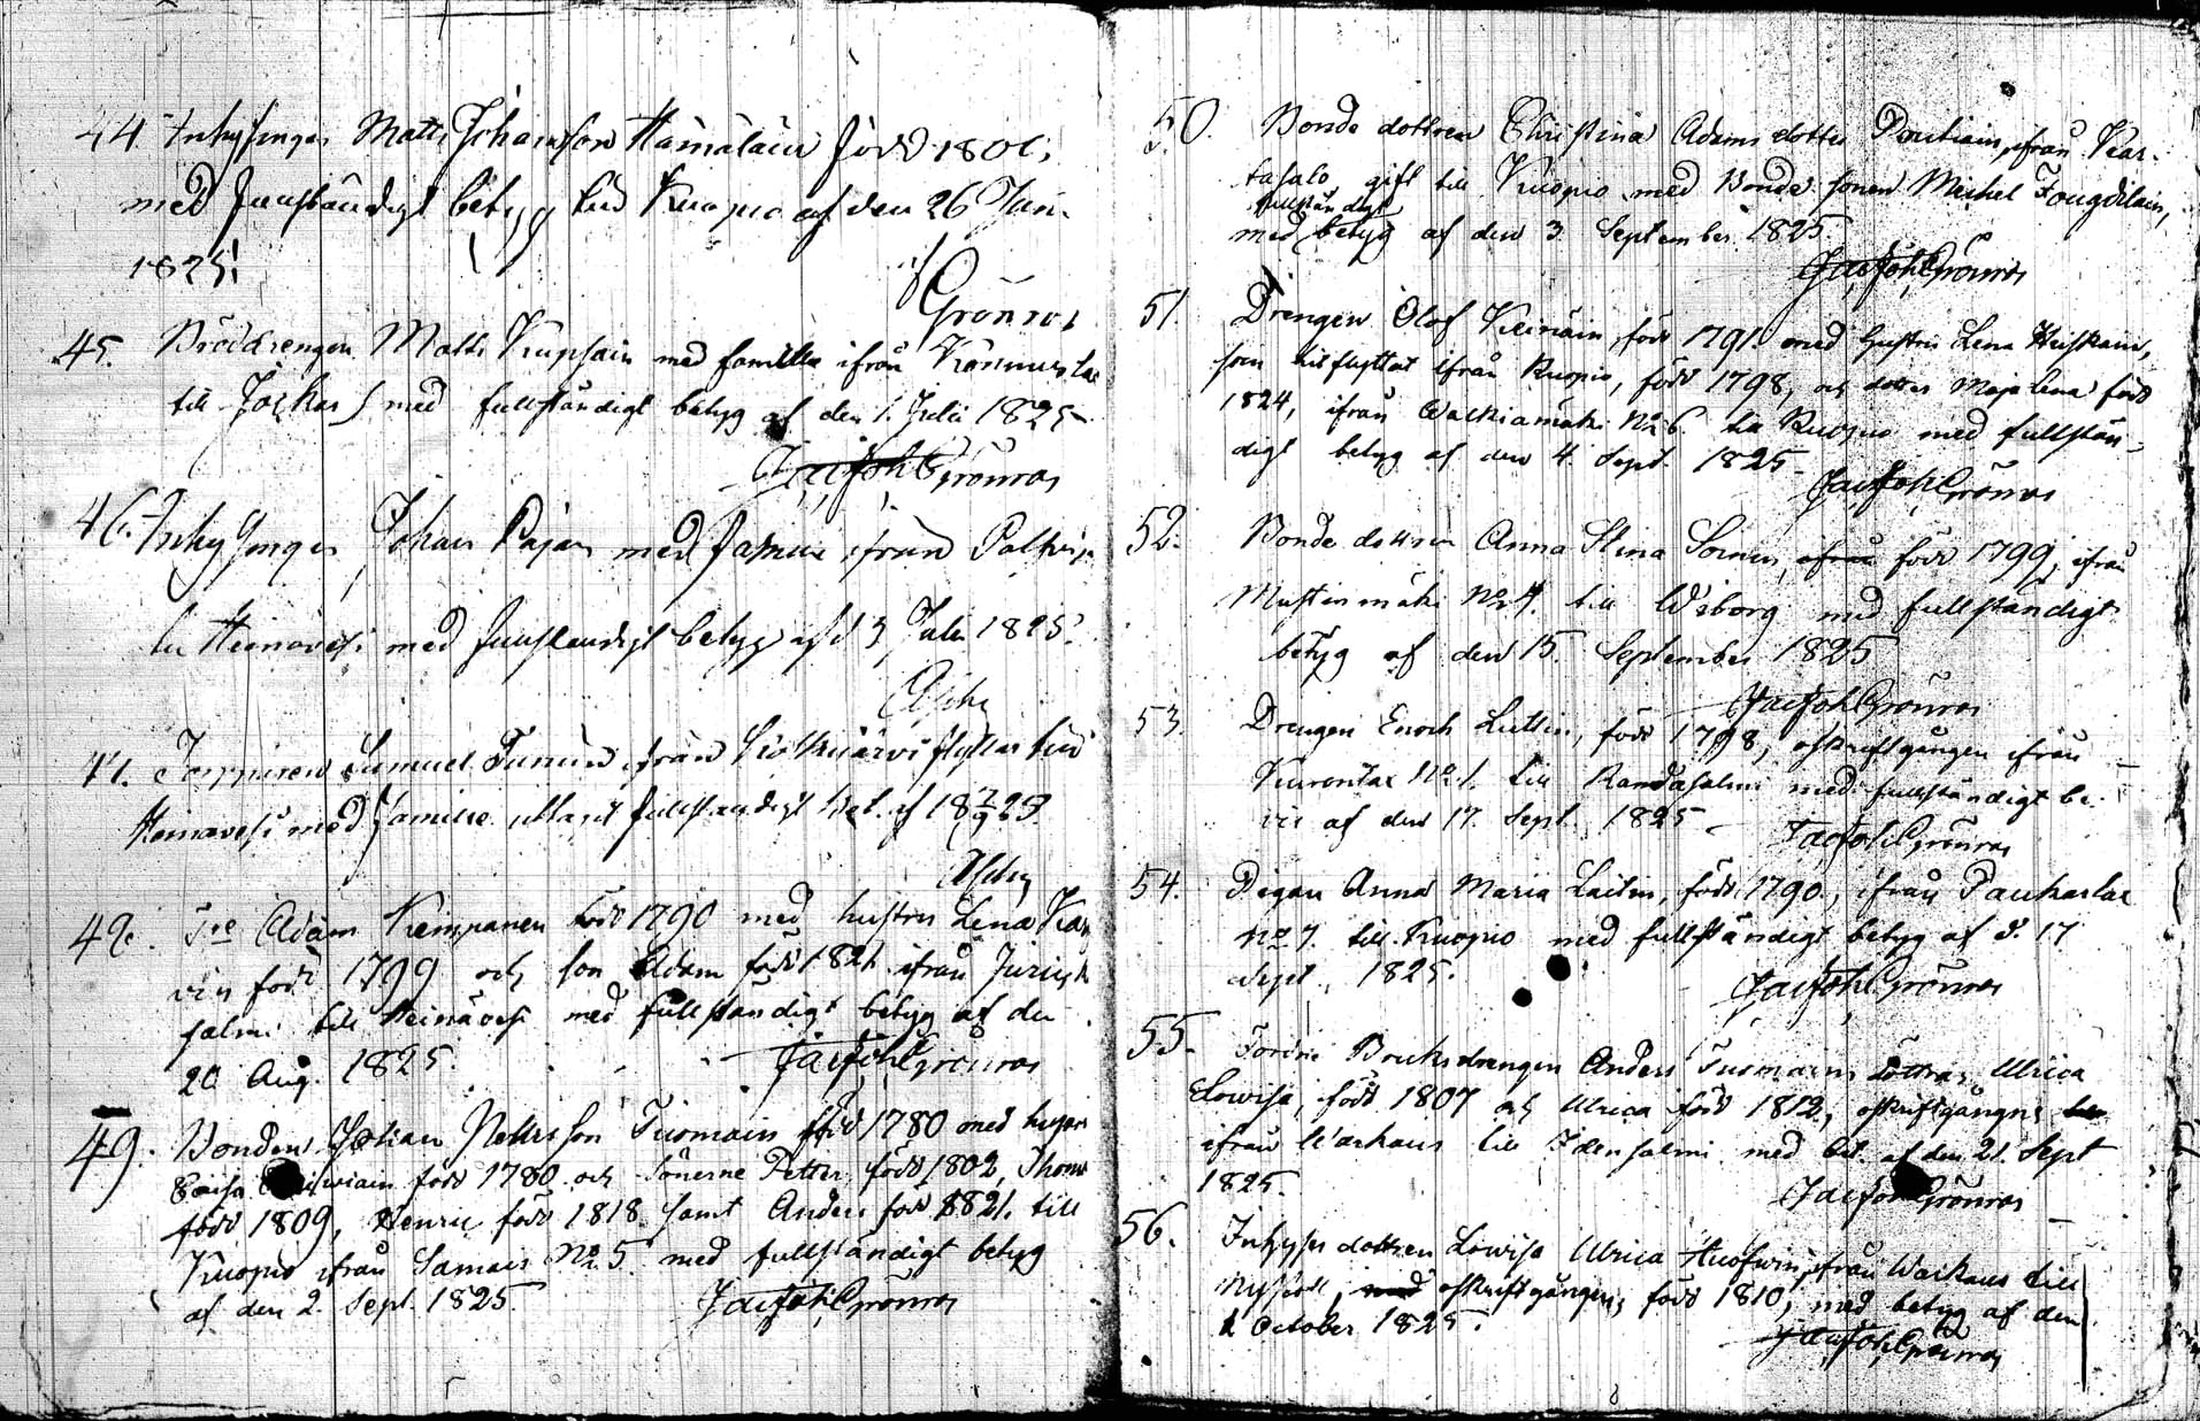 44 Inhysingen Matts Johansson Hämäläin född 1801,
med fullständigt betyg till Kuopio af den 26 Jun.
1825.
Grönros
45. Bröddrengen Matts Kupiain med familie ifrån
till Jockas med fullständigt betyg af den 1. Julii 1825
Jac Joh Grönros
46. Inhysingen Johan Pajan med familie ifrån
till Heinävesi med fullständigt betyg af d 3 Julii 1825.
47. Samuel ifrån flyttar till
Heinävesi med familie fullständigt bet. af
48. Adam Kempanen född 1790 med hustru Lena
född 1799 och son Adam född 1821 ifrån
salmi till Heinävesi med fullständigt betyg af den
20 Aug. 1825. Jac Joh Grönros
49. Bonden Johan Tuomain född 1780 med hustru
Caisa född 1780 och Sönerne Petter född 1802, Thomas
född 1809, Henric född 1818 samt Anders född 1821. till
Kuopio ifrån Samais No 5 med fullständigt betyg
af den 2. Sept. 1825. Jac Joh Grönros
50. Bonde dottren Christina Adams dotter ifrån Kar-
tasalo gift till Kuopio med Bonde sonen Michel
fullständigt
med betyg af den 3 September 1825
Jac Joh Grönros
51. Drengen Olof Keinäin född 1791. med hustru Lena Heiskain,
som hit flyttat ifrån Kuopio, född 1798, och dotter Maja Lena född
1824, ifrån Walkiamäki No 6. till Kuopio med fullstän-
digt betyg af den 4. Sept. 1825
Jac Joh Grönros
52. Bonde dottren Anna Stina Soinin, ifrån född 1799, ifrån
Mustinmäki No 4. till Wiborg med fullständigt
betyg af den 15. September 1825
Jac Joh Grönros
53. Drengen Enoch Luttin, född 1798, oskriftgången ifrån
Kurontax No 1. till Randasalmi med fullständigt be-
vis af den 17. Sept. 1825
Jac Joh Grönros
54. Pigan Anna Maria Laitin, född 1790., ifrån Paukarlax
No 7. till Kuopio med fullständigt betyg af d. 17
Sept. 1825.
Jac Joh Grönros
55. Bruksdrengen Anders Tuomains döttrar, Ulrica
Lowisa, född 1807 och Ulrica född 1812, oskriftgångne
ifrån Warkaus till Idensalmi med bet. af den 21. Sept
1825.
Jac Joh Grönros
56. Inhyses dottren Lowisa Ulrica ifrån Warkaus till
Nyslott, med oskriftgången, född 1810, med betyg af den
1 October 1825.
Jac Joh Grönros